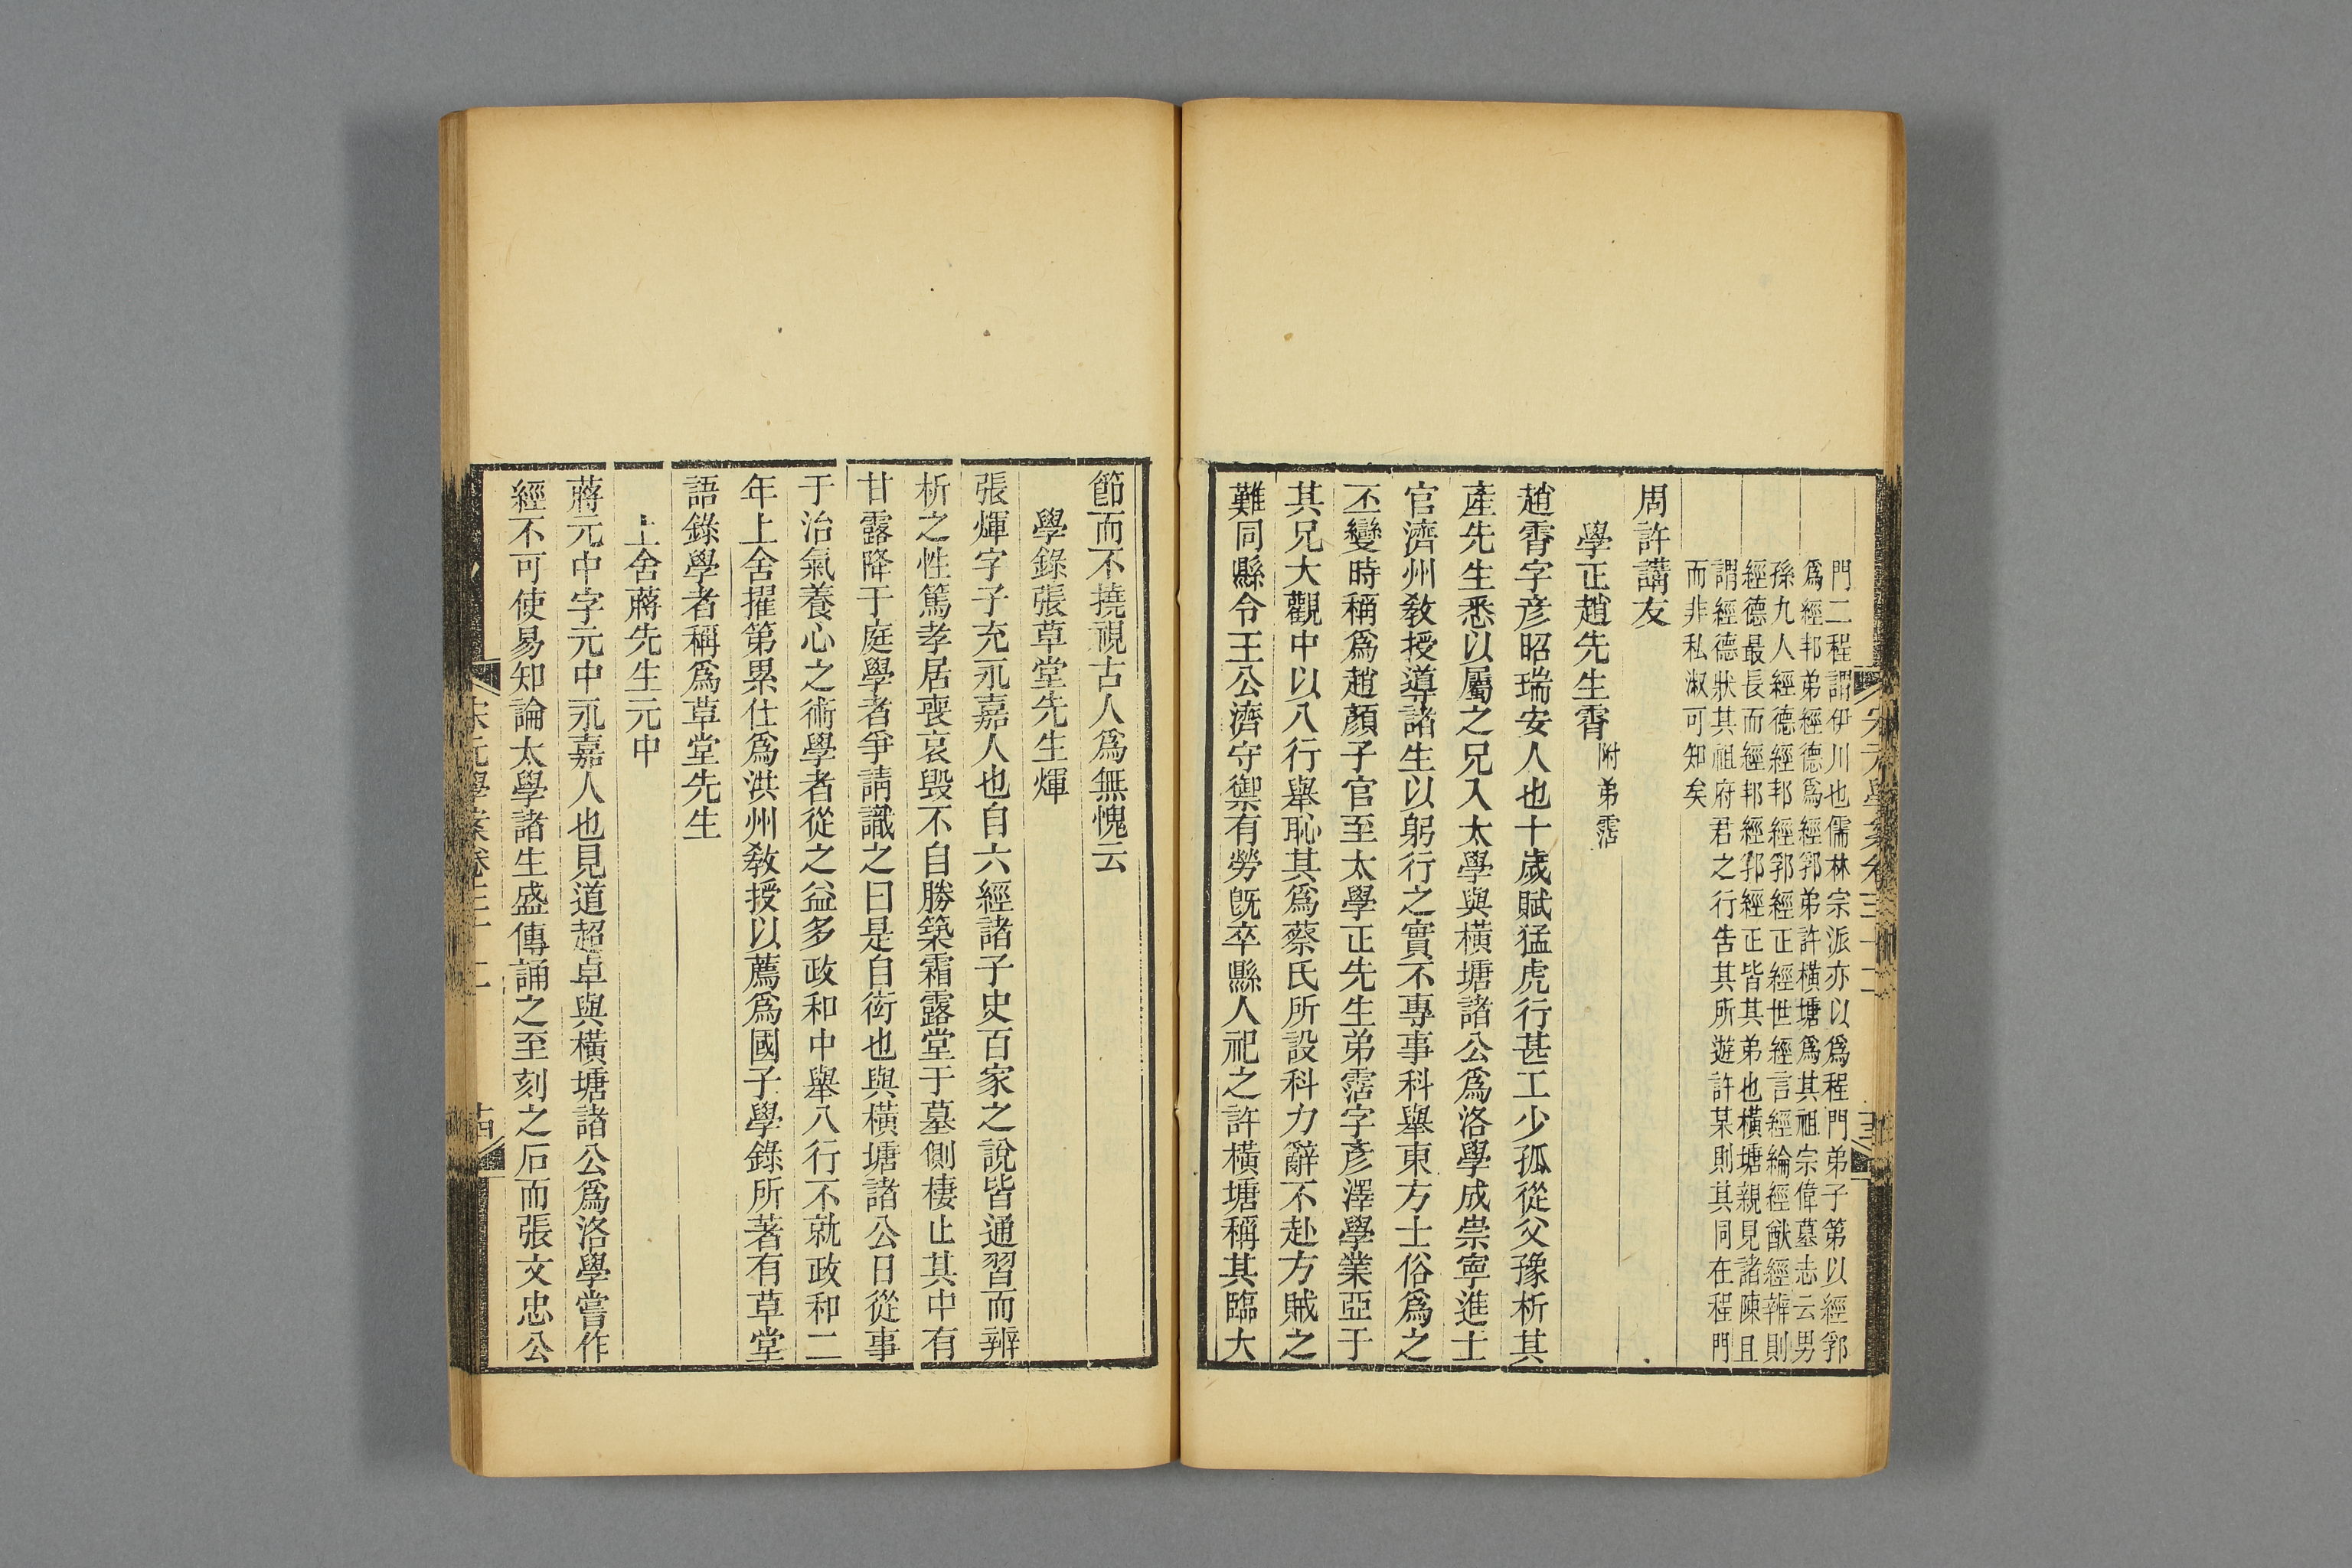 門二程謂伊川也儒林宗派亦以爲程門弟子第以經郛
爲經邦弟經德爲經郛弟許橫塘爲其祖宗偉墓志云男
孫九人經德經邦經郛經正經世經言經綸經猷經辨則
經德最長而經邦經郛經正皆其弟也橫塘親見諸陳且
謂經德狀其祖府君之行告其所遊許某則其同在程門
而非私淑可知矣
周許講友
學正趙先生霄附弟霑
趙霄字彥昭瑞安人也十歲賦猛虎行甚工少孤從父豫析其
產先生悉以屬之兄入太學與橫塘諸公爲洛學成崇寧進士
官濟州教授導諸生以躬行之實不專事科舉東方士俗爲之
丕變時稱爲趙顏子官至太學正先生弟霑字彥澤學業亞于
其兄大觀中以八行舉恥其爲蔡氏所設科力辭不赴方賊之
難同縣令王公濟守禦有勞既卒縣人祀之許橫塘稱其臨大
節而不撓視古人爲無愧云
學錄張草堂先生煇
張煇字子充永嘉人也自六經諸子史百家之說皆通習而辨
析之性篤孝居喪哀毀不自勝築霜露堂于墓側棲止其中有
甘露降于庭學者爭請識之曰是自衒也與橫塘諸公日從事
于治氣養心之術學者從之益多政和中舉八行不就政和二
年上舍擢第累仕爲洪州教授以薦爲國子學錄所著有草堂
語錄學者稱爲草堂先生
上舍蔣先生元中
蔣元中字元中永嘉人也見道超卓與橫塘諸公爲洛學嘗作
經不可使易知論太學諸生盛傳誦之至刻之石而張文忠公
宋元學案卷三十二